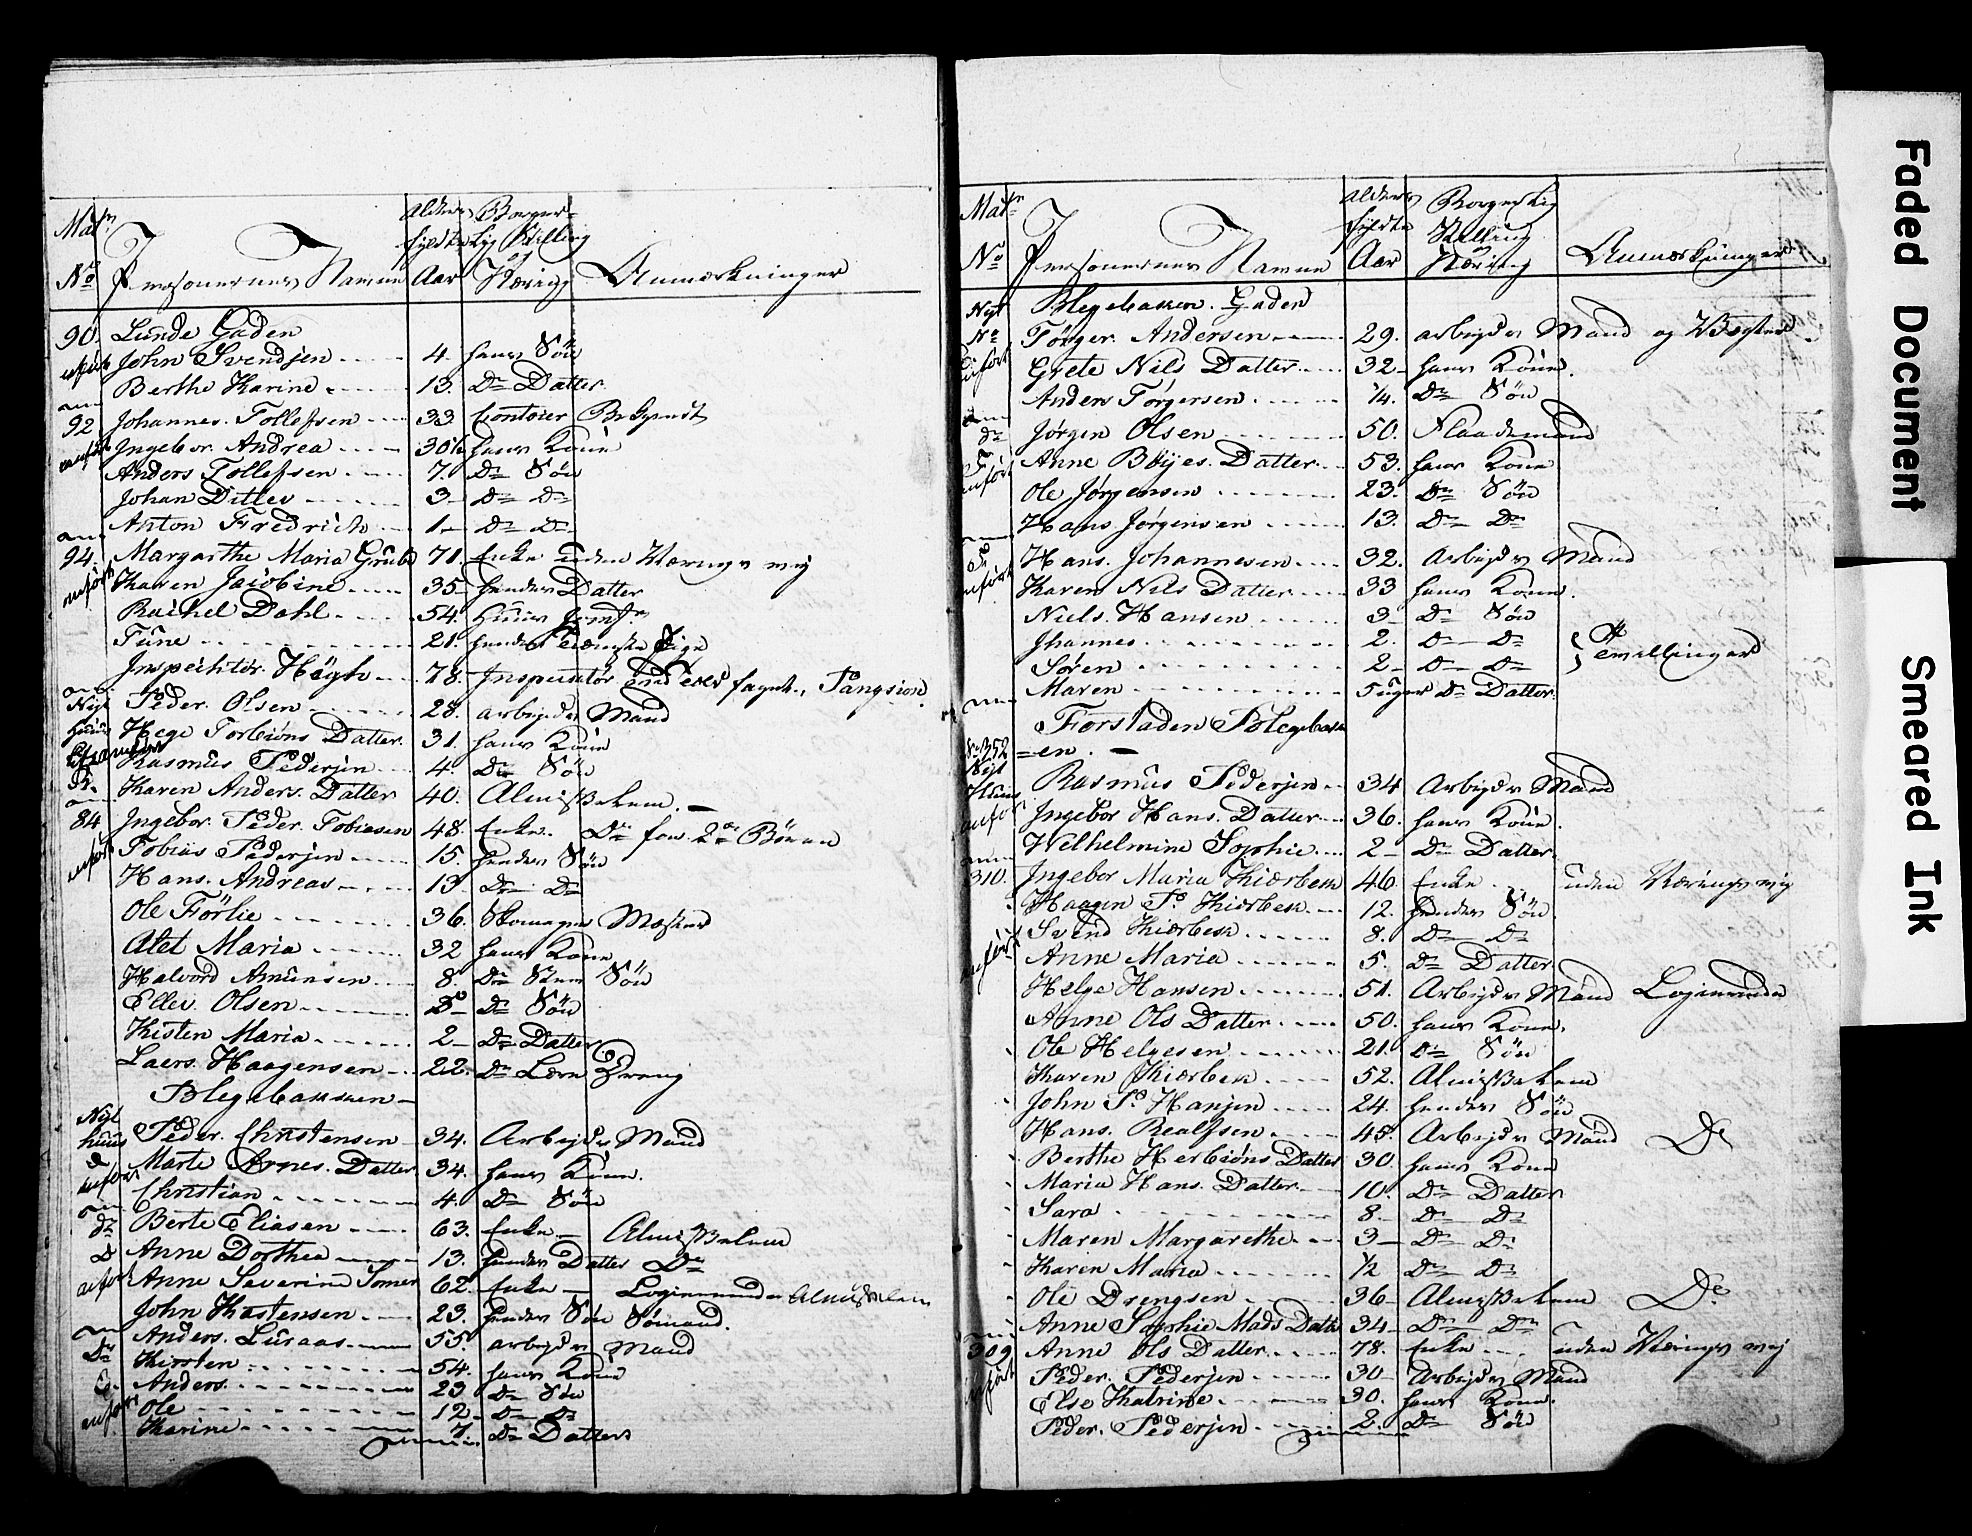 Matr No Personernes Namne Alders fyldte Aar Borgerlig Stilling og Næring Anmærkninger
90. Lunde Gaden
John Svendsen 4. hans Søn
Berthe Karine 13. Do Datter
92 Johannes Tollefsen 33 Contoier Betyent
Ingebor Andrea 30 hans Kone
Anders Tollefsen 7. Do Søn
Johan Ditlev 3 Do Do
Anton Fredrich 1 Do Do
94. Margarthe Maria Grube 71. Enke uden Nærings vej
Karen Jacobine 35 hendes Datter
Rachel Dahl 54. huus Jomfr
Tune 21. hendes Tienneste Pige
Inspechtør Høgh 78. Inspecktør Pangsion
Nyt Peder Olsen 28. arbejds Mand
Huus Hege Torbiøns Datter 31. hans Kone
Rasmus Pedersen 4. Do Søn
Karen Anders Datter 40. Almisselem
84 Ingebor Peder Tobiesen 48. Enke Do for 2de Børnen
anført Tobias Pedersen 15. hendes Søn
Hans Andreas 13 Do Do
Ole Førlie 36. Skomager Mester
Alet Maria 32 hans Kone
Halvord Amunsen 8. Do Søn
Ellev Olsen Do Søn
Kisten Maria 2 Do Datter
Laers Haagensen 22. Do Lære Dreng
Blegebakken
Nyt huus Peder Christensen 34. Arbejds Mand
Marte Arnes Datter 34. hans Kone
anført Christian 4. Do Søn
do Berte Eliasen 63. Enke Almisselem
D Anne Dorthea 13. hendes Datter Do
anført Anne Severine 62. Enke Logierende Almisselem
John Kastensen 23. hendes Søn Sømand
Do Anders Luraas 55. arbejds Mand
Kirsten 54. hans Kone
Anders 23 Do Søn
anført Ole 12 Do Do
Karine 7. Do Datter
Matr No Personernes Namne Alders fyldte Aar Borgerlig Stilling og Næring Anmærkninger
Nyt Blegebakken Gaden
No Tørger Andersen 29. arbejds Mand og
anført Grete Nils Datter 32 hans Kone
Anders Tørgersen 1/4. Do Søn
do Jørgen Olsen 50. Flaademand
Anne Bøyes Datter 53. hans Kone
anført Ole Jørgensen 23. Do Søn
Hans Jørgensen 13. Do Do
Do Hans Johannesen 32. Arbejds Mand
anført Karen Nils Datter 33 hans Kone
Niels Hansen 3 Do Søn
Jhannes 2. D Do
Søren 2 D Do Tvillinger
Maren 5 uger Do Datter
Forstaden Blegebakk
No 352 =en.
Nyt Huus Rasmus Pedersen 34 Arbejds Mand
anført Ingebor Hans Datter 36. hans Kone
Welhelmine Sophie 2 Do Datter
310. Ingebor Maria Kierbek 46. Enke uden Nærings vej
Haagen P. Kierbek 12. hendes Søn
Svend Kierbek 8. Do Do
anført Anne Maria 5. Do Datter
Helge Hansen 51. Arbejds Mand Logierende
Anne Ols Datter 50. hans Kone
Ole Helgesen 21. Do Søn
Karen Kierbek 52. Almisselem
John P. Hansen 24. hendes Søn
Hans Realfsen 45. Arbejds Mand Do
Berthe Herbiøns Datter 30. hans Kone
Maria Hans Datter 10. Do Datter
Sara 8 Do Do
Maren Margarethe 3 Do Do
Karen Maria 1/2 Do Do
Ole Drengsen 36 Almisselem Do
Anne Sophie Mads Datter 34 Do Do
309 Anne Ols Datter 78. Enke uden Nærings vej
anført Peder Pedersen 30 Arbejds Mand
Else Katrine 30. hans Kone
Peder Pedersen 2. Do Søn
Faded Document
Smeared Ink